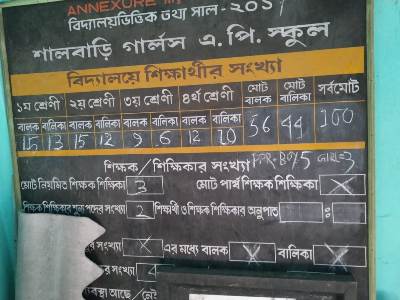 ANNEXURE
বিদ্যালয়ভিত্তিক তথ্য সাল-২০১
শালবাড়ি গার্লস এ.পি.স্কুল
বিদ্যালয়ে শিক্ষার্থীর সংখ্যা
১ম শ্রেণী ২য় শ্রেণী ৩য় শ্রেণী ৪র্থ শ্রেণী মোট বালক মোট বালিকা সর্বমোট
বালক বালিকা বালক বালিকা বালক বালিকা বালক বালিকা 56 44 100
15 13 15 12 9 6 12 20
শিক্ষক/শিক্ষিকার সংখ্যা
মোট নিয়মিত শিক্ষক শিক্ষিকা 3 মোট পার্শ্ব শিক্ষক শিক্ষিকা X
শিক্ষক শিক্ষিকার শূন্য পদের সংখ্যা 2 শিক্ষার্থী ও শিক্ষক শিক্ষিকার অনুপাত :
সংখ্যা X এর মধ্যে বালক X বালিকা X
র সংখ্যা 4
আছে/নেই